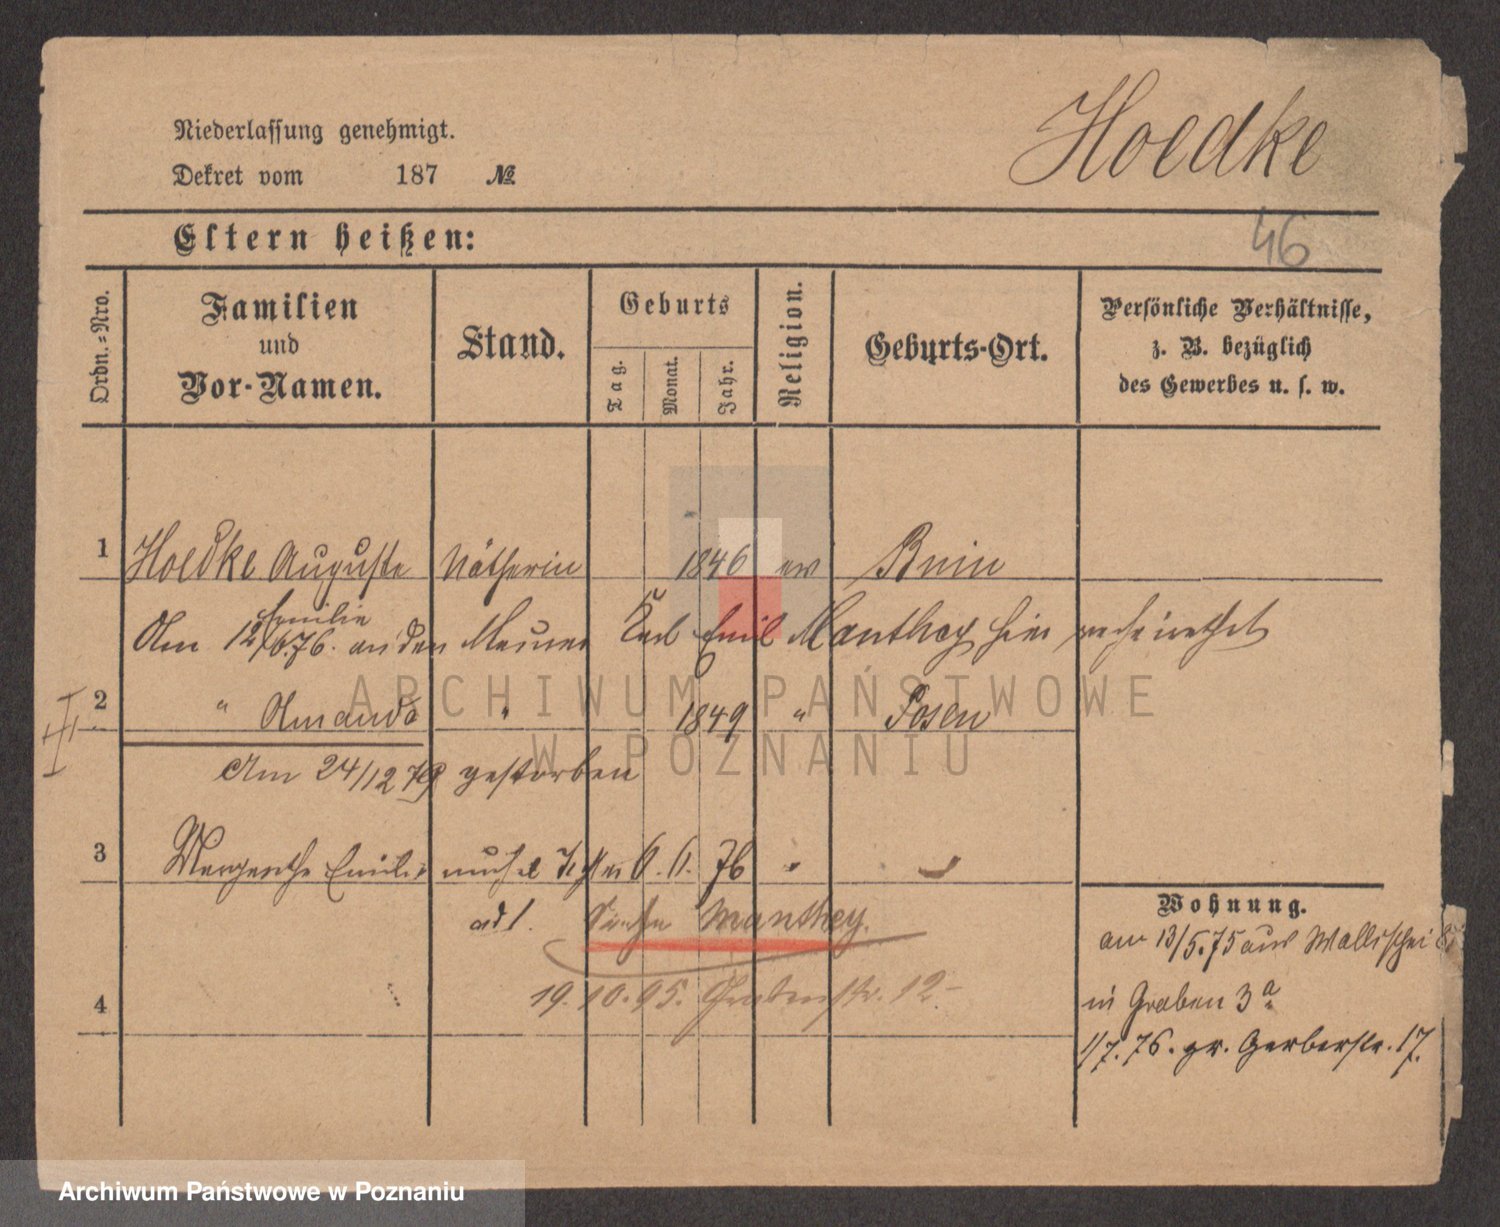 Hoedke
Niederlassung genehmigt.
Dekret vom 187 №
Eltern heißen:
46
Ordn.=Nro.
Familien
und
Vor-Namen.
Stand.
Geburts
Tag.
Monat.
Jahr.
Religion.
Geburts-Ort.
Persönliche Verhältnisse,
z. B. bezüglich
des Gewerbes u. s. w.
1 Hoedke Auguste Nätherin 1846 ev Bnin
Emilie
Am 12/6.76. an den Maurer Karl Emil Manthey hier verheirathet
2 " Amanda " 1849 " Posen
Am 24/12 79 gestorben
3 Emilie 6. 6. 76 "
Manthey.
Wohnung.
am 13/5.75 aus Wallischei
in Graben 3a
4 19.10.95. Grabenstr. 12
1/7.76. gr. Gerberstr. 17.
ARCHIWUM PAŃSTWOWE
W POZNANIU
Archiwum Państwowe w Poznaniu